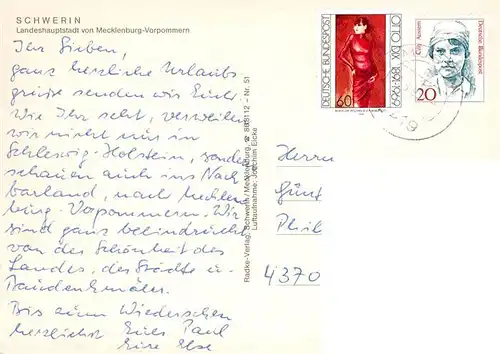 SCHWERIN
Landeshauptstadt von Mecklenburg-Vorpommern
Ihr Lieben,
ganz herzliche Urlaubs
grüße senden wir Euch.
Wie Ihr seht, verweilen
wir nicht nur in
Schleswig-Holstein, sondern
schauen auch ins Nach
barland, nach Mecklen
burg-Vorpommern. Wir
sind ganz beeindruckt
von der Schönheit des
Landes, der Städte u.
Baudenkmäler.
Bis zum Wiedersehen
herzlichst Eure Paul
Eure Else
Radke-Verlag, Schwerin/Mecklenburg, ☎ 863112 – Nr. 51
Luftaufnahme: Joachim Eicke
DEUTSCHE BUNDESPOST
60
OTTO DIX 1891-1969
Cilly Aussem
Deutsche Bundespost
20
Herrn
Günt
Phil
4370